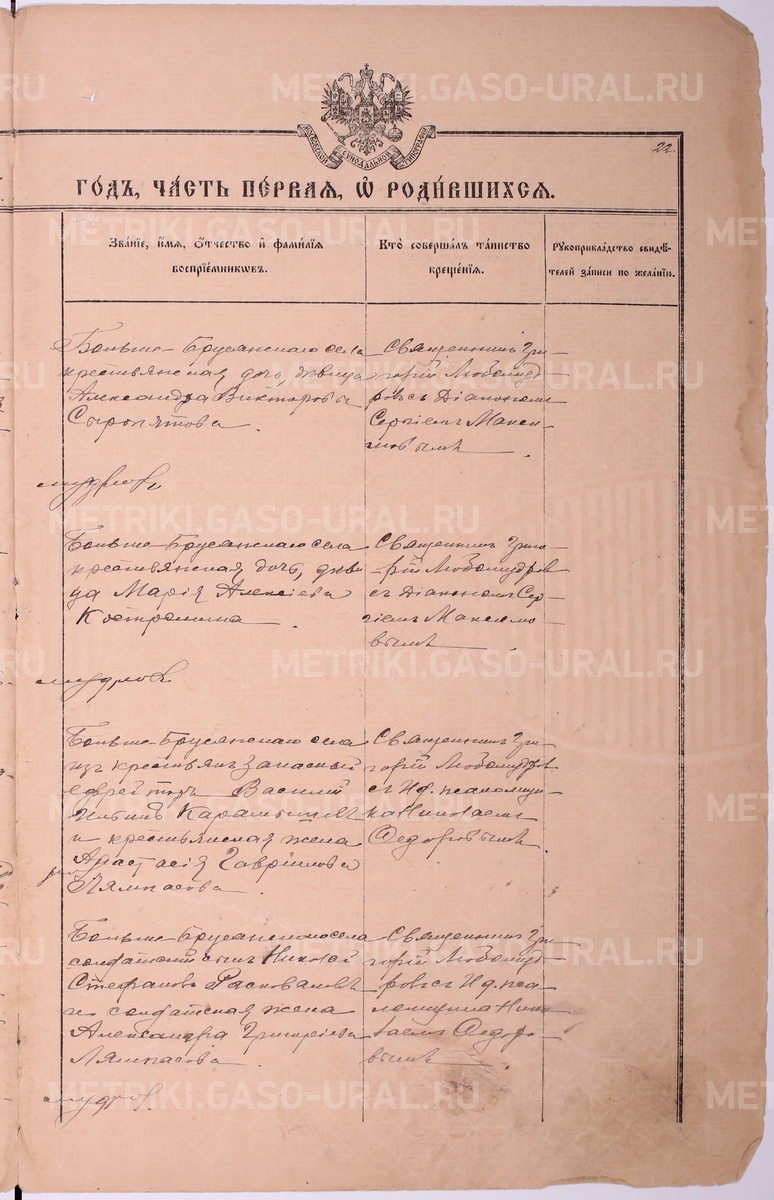 МОСКОВСКОЙ СѴНОДАЛЬНОЙ ТИПОГРАФІИ
22.
ГО́ДЪ, ЧА́СТЬ ПЕ́РВАЯ, Ѡ҆ РОДИ́ВШИХСЯ.
Зва́нїе, и҆́мя, ѻ҆́тчество и҆ фами́лїя
воспрїе́мникѡвъ.
Кто̀ соверша́лъ та́инство
креще́нїя.
Рꙋкоприкла́дство свидѣ́-
телей за́писи по жела́нїю.
Больше-Брусянскаго села
крестьянская дочь, девица
Александра Викторова
Сыропятова.
Священникъ Гри-
горій Любомуд-
ровъ съ Діакономъ
Сергіемъ Макси-
мовымъ.
мудровъ
Больше-Брусянскаго села
крестьянская дочь, деви
ца Марія Алексіева
Костромина.
Священникъ Григо-
рій Любомудровъ
съ Діакономъ Сер-
гіемъ Максимо
вымъ
мудровъ
Больше-Брусянскаго села
изъ крестьянъ запасный
Василій
Ильинъ
и крестьянская жена
Анастасія Гаврилова
Лямпасова.
Священникъ Гри-
горій Любомудровъ
съ И.д. псаломщи
ка Николаемъ
Федоровымъ.
Больше-Брусянскаго села
солдатскій сынъ Николай
Стефановъ Расковаловъ
и солдатская жена
Александра Григоріева
Лямпасова.
Священникъ Гри-
горій Любомуд-
ровъ съ И.д. пса-
ломщика Нико
лаемъ Федоро-
вымъ
мудров.
METRIKI.GASO-URAL.RU